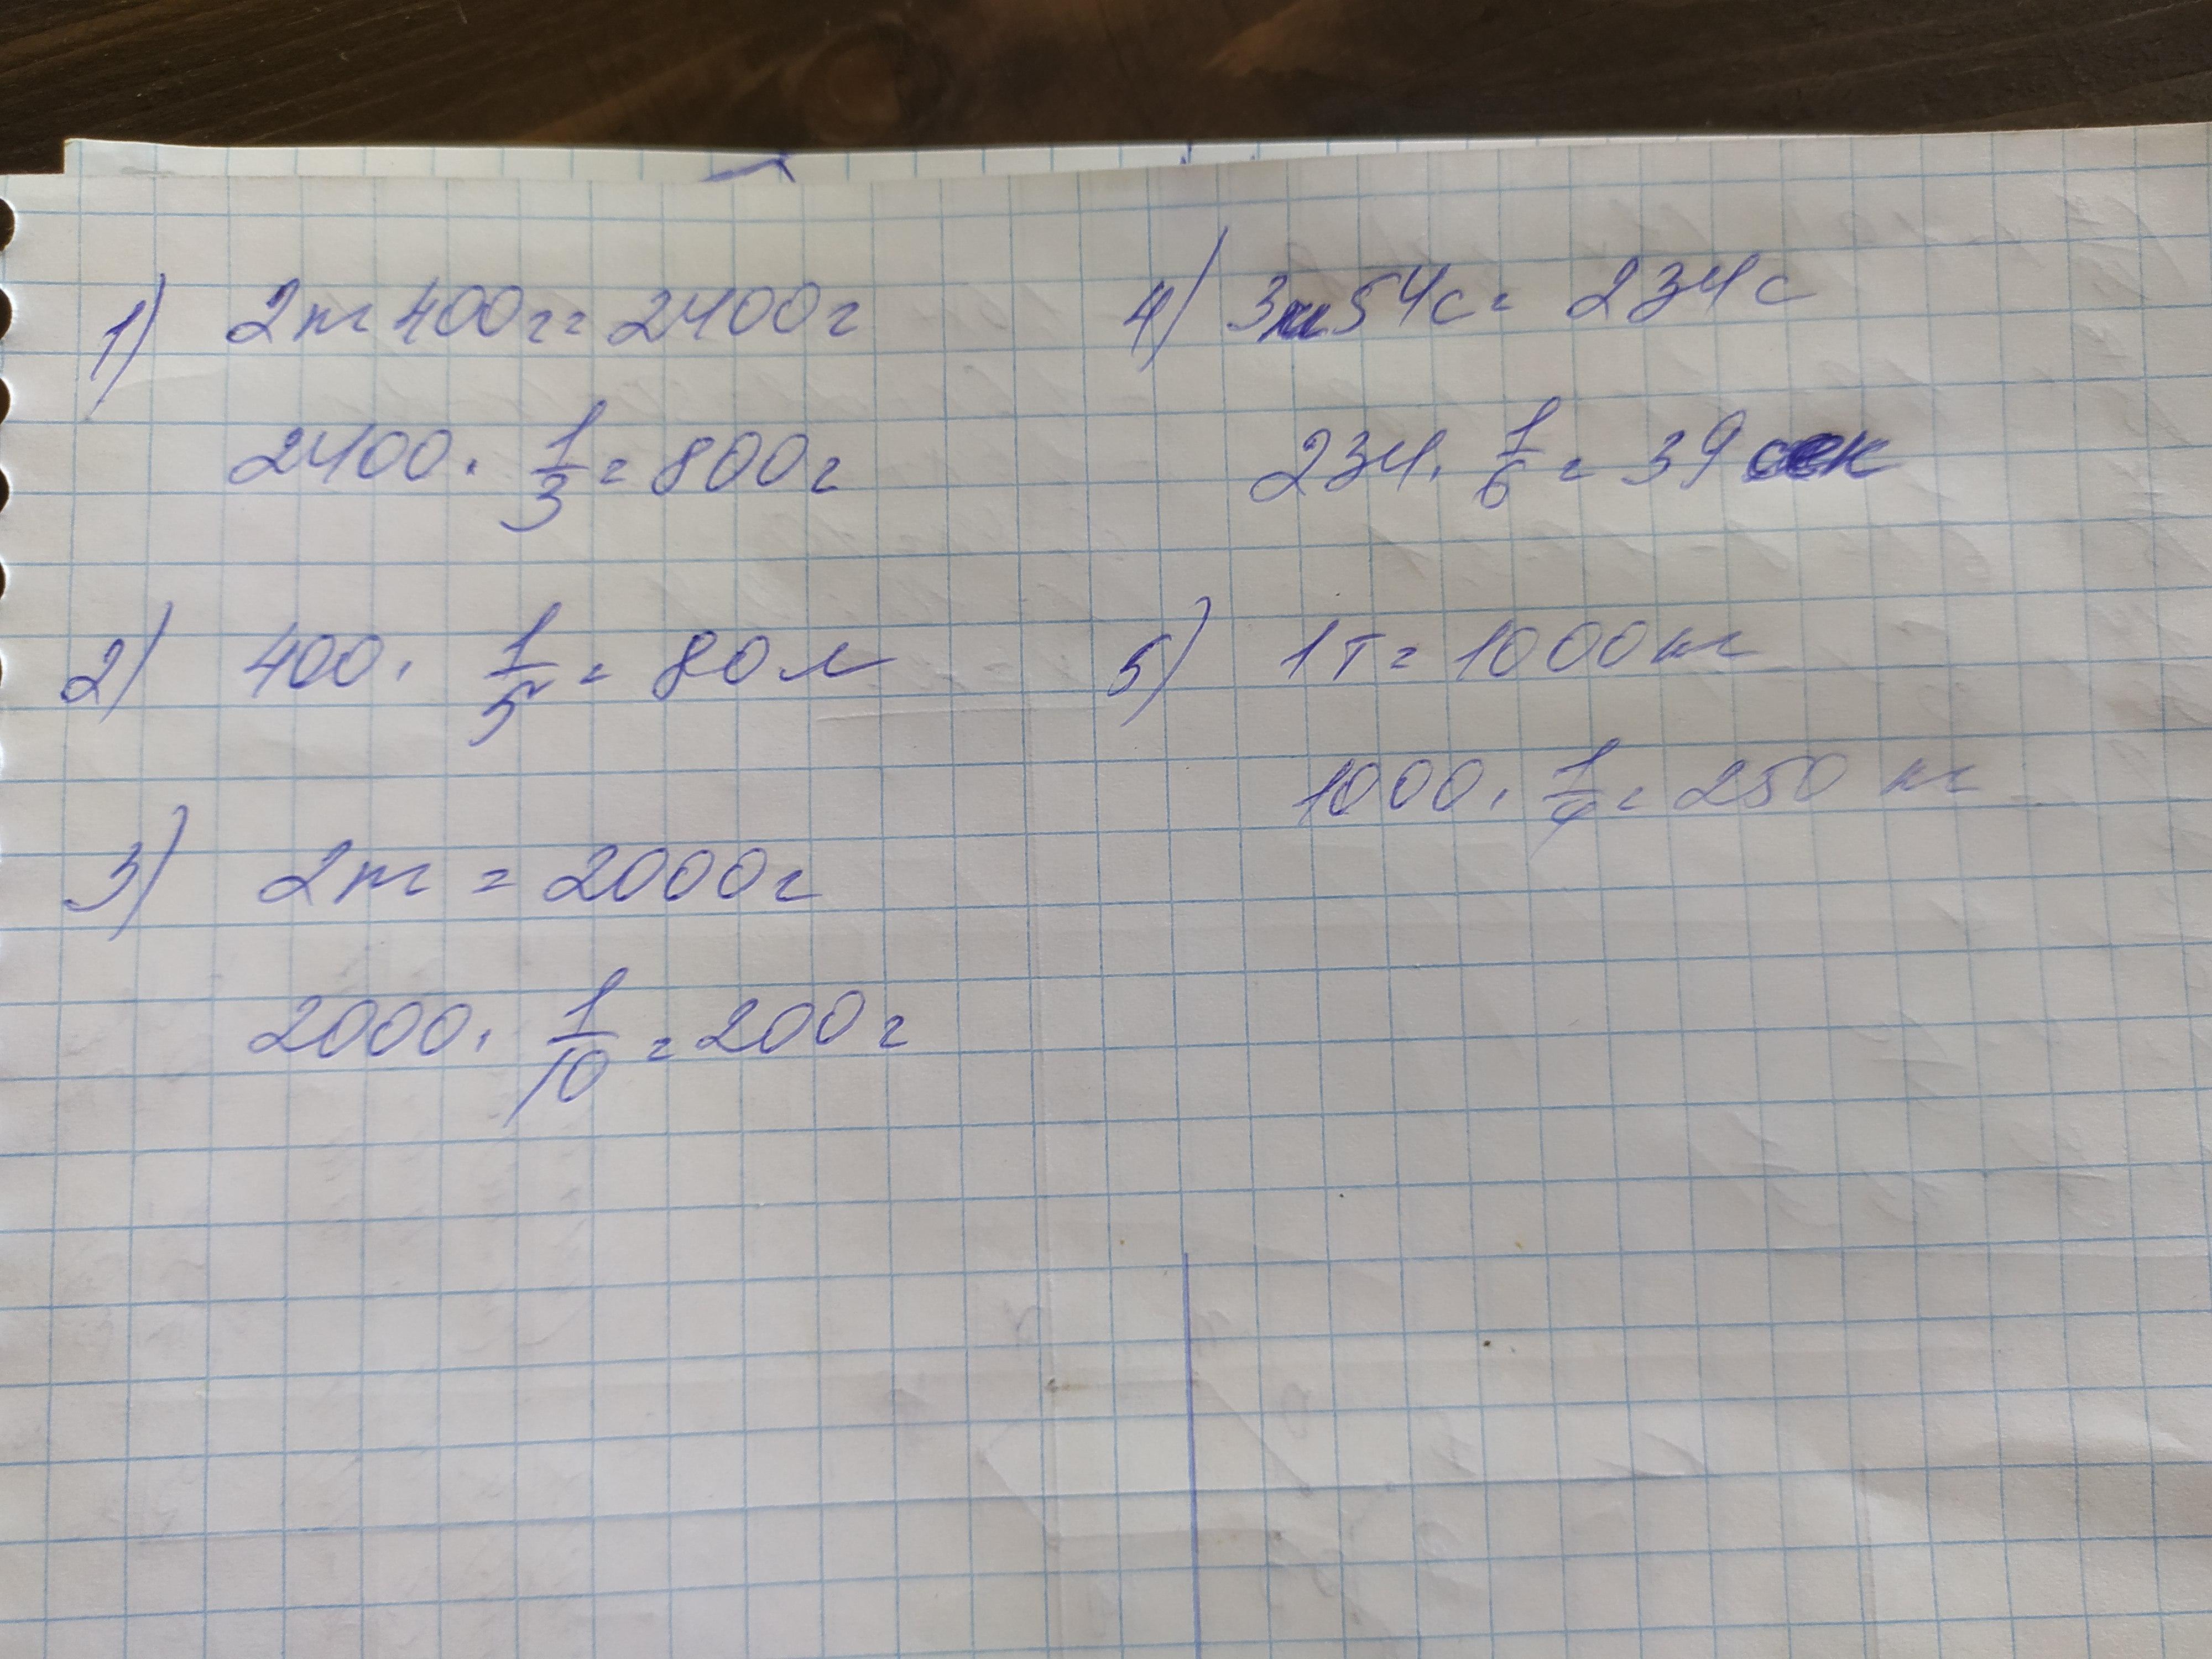 1) 2кг 400г = 2400г
2400 · 1/3 = 800г
2) 400 · 1/5 = 80 л
3) 2кг = 2000г
2000 · 1/10 = 200г
4) 3м 54с = 234с
234 · 1/6 = 39 сек
5) 1т = 1000кг
1000 · 1/4 = 250 кг